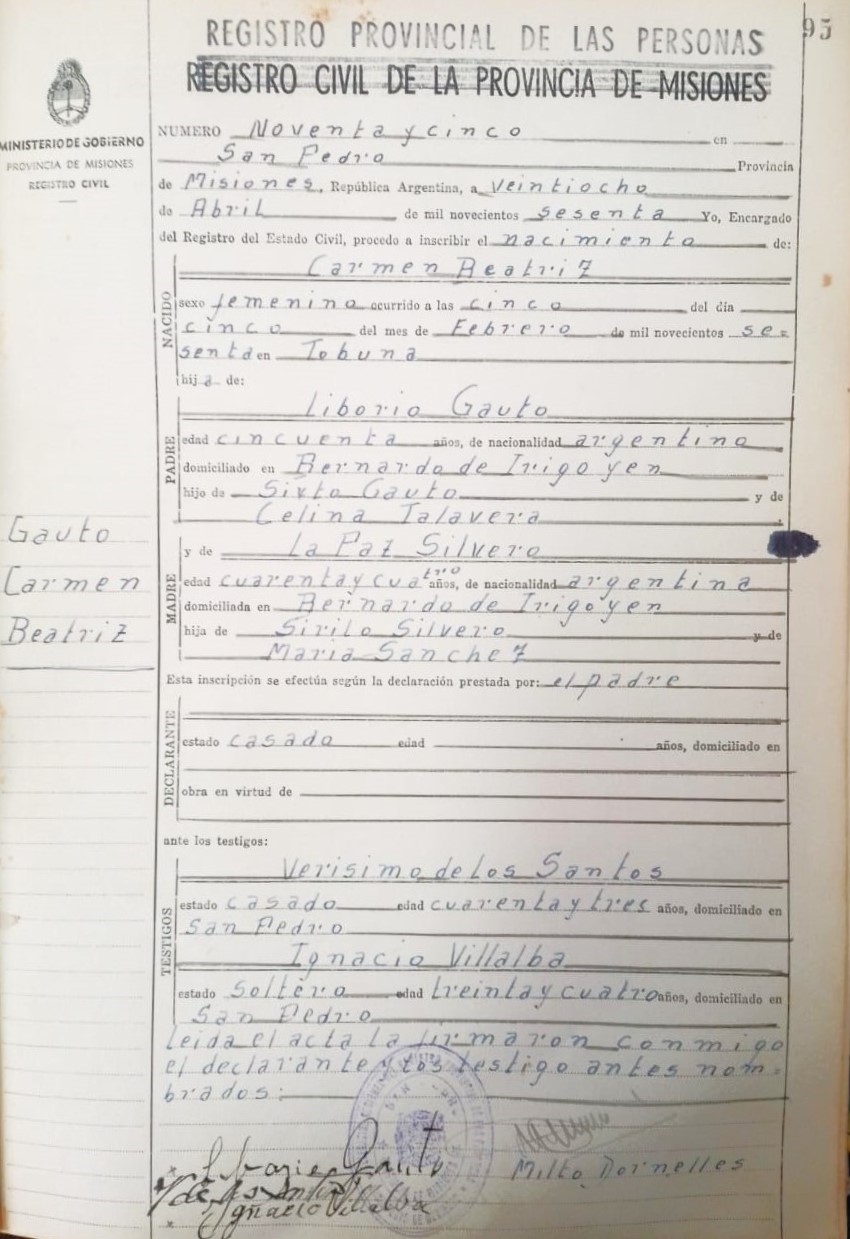 95
REGISTRO PROVINCIAL DE LAS PERSONAS
REGISTRO CIVIL DE LA PROVINCIA DE MISIONES
MINISTERIO DE GOBIERNO
PROVINCIA DE MISIONES
REGISTRO CIVIL
NUMERO Noventa y cinco en
San Pedro Provincia
de Misiones, República Argentina, a Veintiocho
de Abril de mil novecientos sesenta Yo, Encargado
del Registro del Estado Civil, procedo a inscribir el nacimiento de:
NACIDO
Carmen Beatriz
sexo femenino ocurrido a las cinco del día
cinco del mes de Febrero de mil novecientos se=
senta en Tobuna
hija de:
PADRE
Liborio Gauto
edad cincuenta años, de nacionalidad argentino
domiciliado en Bernardo de Irigoyen
hijo de Sixto Gauto y de
Celina Talavera
Gauto
Carmen
Beatriz
MADRE
y de La Paz Silvero
edad cuarenta y cuatro años, de nacionalidad argentina
domiciliada en Bernardo de Irigoyen
hija de Sirilo Silvero y de
Maria Sanchez
Esta inscripción se efectúa según la declaración prestada por: el padre
DECLARANTE
estado casado edad años, domiciliado en
obra en virtud de
ante los testigos:
TESTIGOS
Verisimo de los Santos
estado casado edad cuarenta y tres años, domiciliado en
San Pedro
Ignacio Villalba
estado soltero edad treinta y cuatro años, domiciliado en
San Pedro
leida el acta la firmaron conmigo
el declarante y los testigo antes nom=
brados:
Liborio Gauto
Milto Dornelles
V de los Santos
Ignacio Villalba